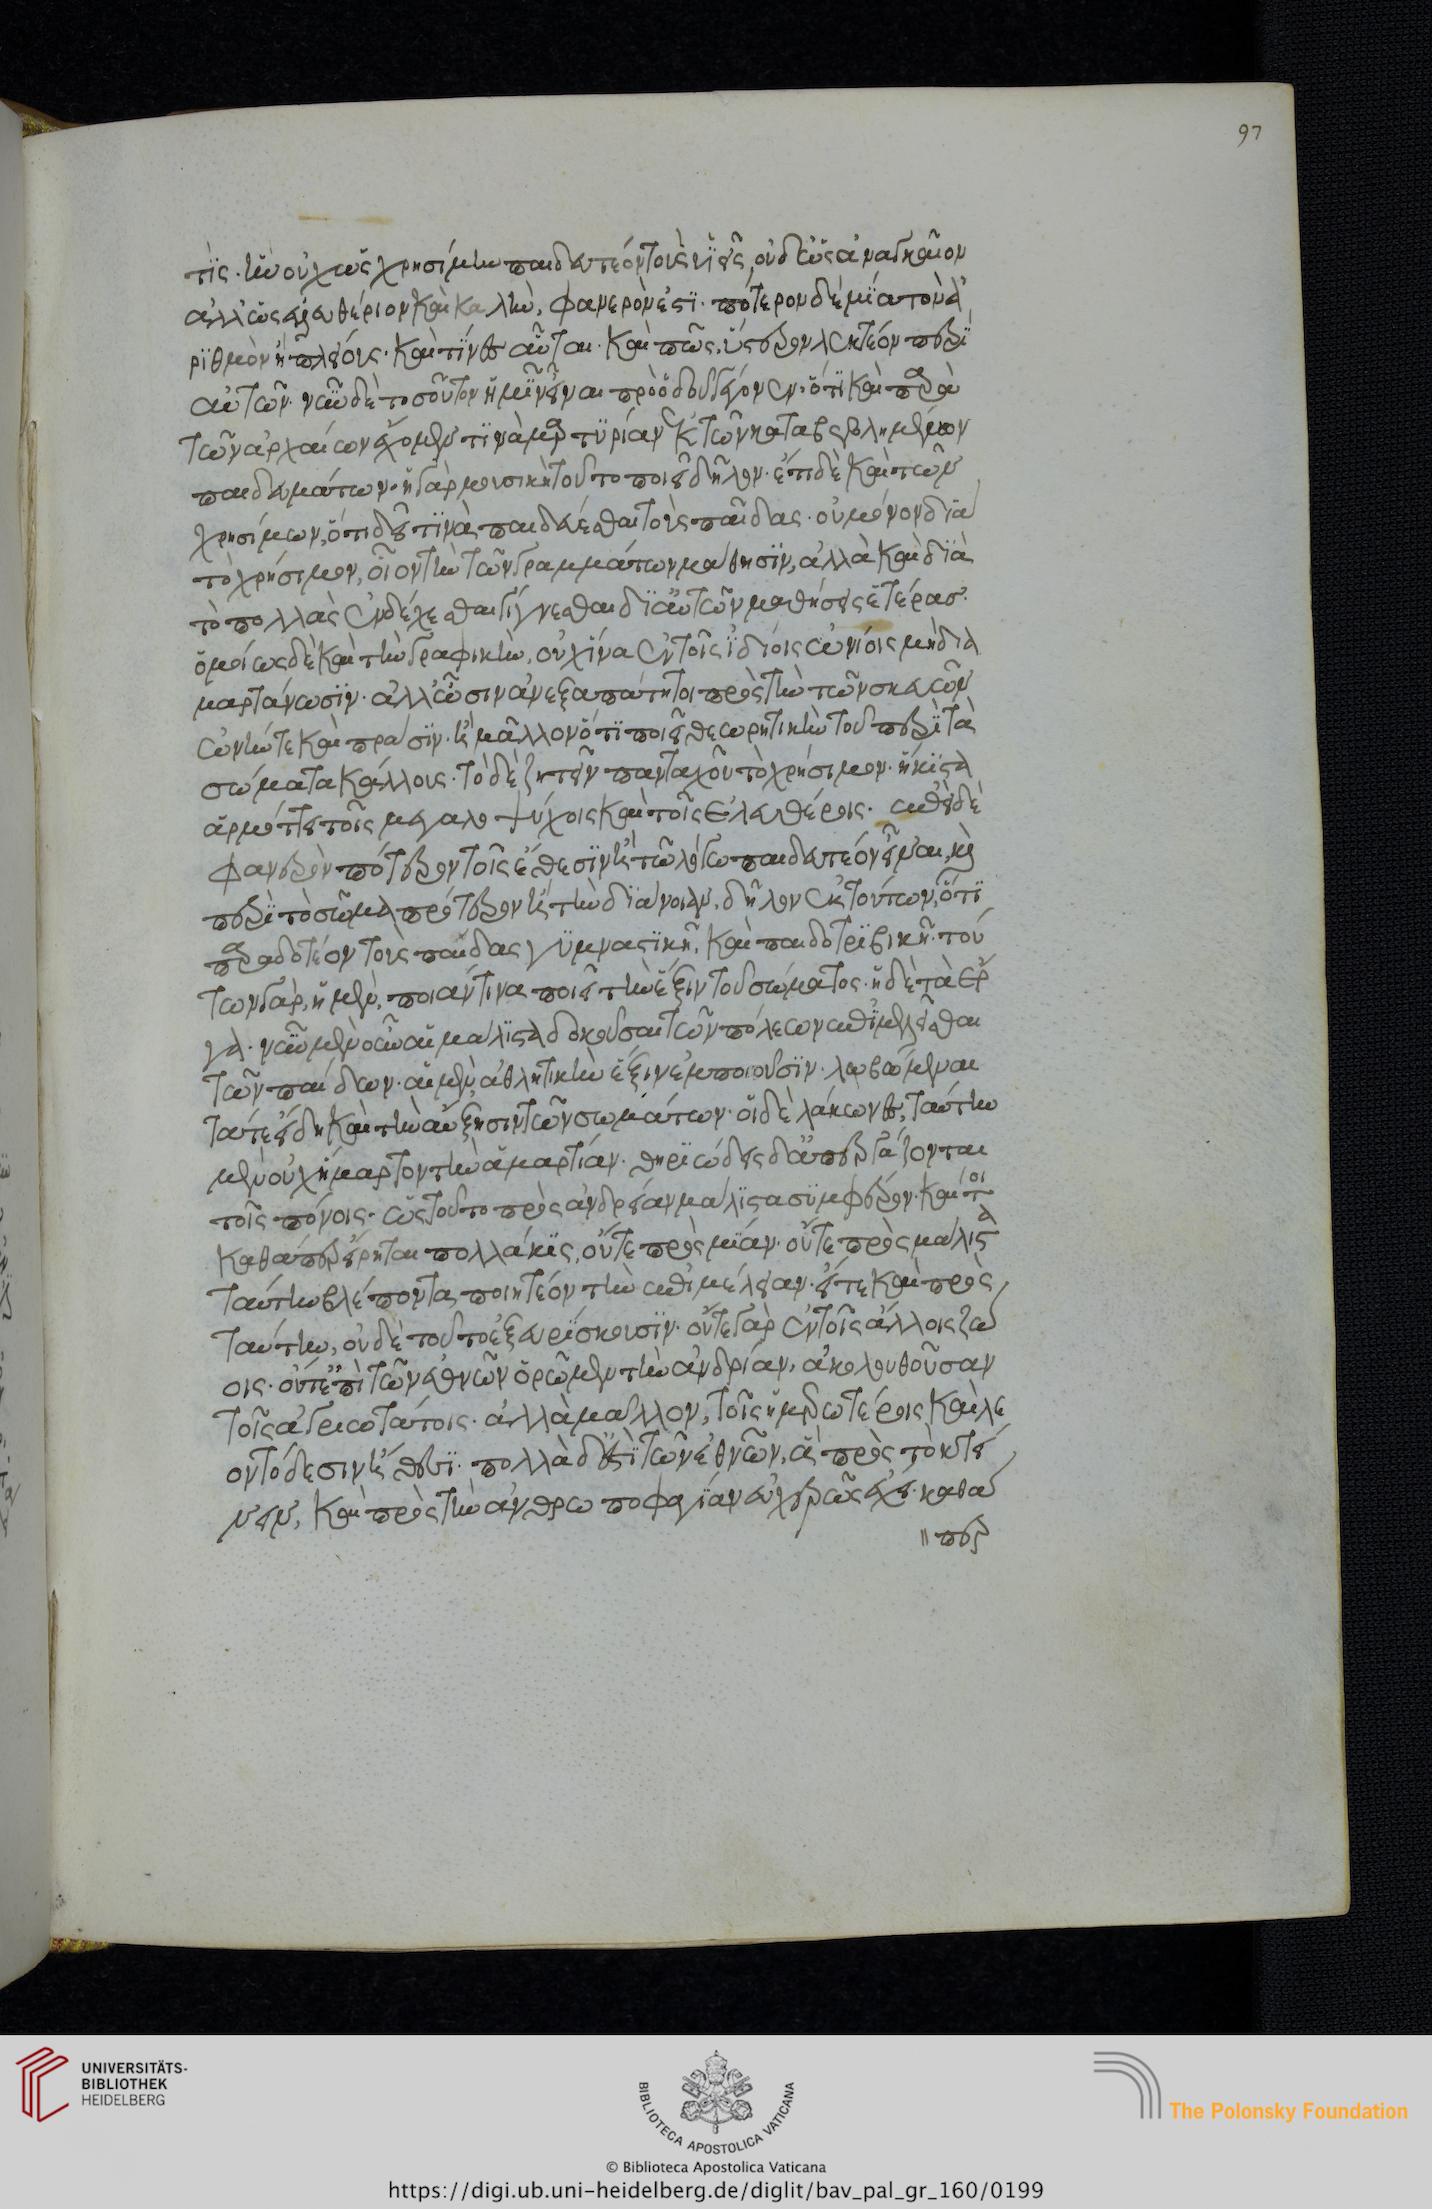 τὶς· ἣν οὐχ ὡς χρησίμην παιδευτέον τοὺς υἱεῖς, οὐδ' ὡς ἀναγκαῖον
ἀλλ' ὡς ἐλευθέριον καὶ καλὴν, φανερὸν ἐστϊ· πότερον δὲ μία τὸν ἀ
ριθμὸν ἢ πλείους· καὶ τίνες αὗται· καὶ πῶς, ὕστερον λεκτέον περὶ
αὐτῶν· νῦν δὲ τοσοῦτον ἡμῖν εἶναι πρὸ ὁδοῦ γέγονεν· ὅτι καὶ παρὰ
τῶν ἀρχαίων ἔχομεν τινὰ μαρτυρίαν ἐκ τῶν καταβεβλημένων
παιδευμάτων· ἡ γὰρ μουσικὴ τοῦτο ποιεῖ δῆλον· ἔτι δὲ καὶ τῶν
χρησίμων, ὅτι δεῖ τινὰ παιδεύεσθαι τοὺς παῖδας· οὐ μόνον διὰ
τὸ χρήσιμον, οἷον τὴν τῶν γραμμάτων μάθησιν, ἀλλὰ καὶ διὰ
τὸ πολλὰς ἐνδέχεσθαι γίγνεσθαι δι' αὐτῶν μαθήσεις ἑτέρασ·
ὁμοίως δὲ καὶ τὴν γραφικὴν, οὐχ ἵνα ἐν τοῖς ἰδίοις ὠνίοις μὴ δια
μαρτάνωσιν· ἀλλ' ὦσιν ἀνεξαπάτητοι πρὸς τὴν τῶν σκευῶν
ὠνήν τε καὶ πρᾶσιν· ἢ μᾶλλον ὅτι ποιεῖ θεωρητικὴν τοῦ περὶ τὰ
σώματα κάλλους· τὸ δὲ ζητεῖν πανταχοῦ τὸ χρήσιμον· ἥκιστα
ἁρμόττει τοῖς μεγαλοψύχοις καὶ τοῖς ἐλευθέροις· ἐπεὶ δὲ
φανερὸν πότερον τοῖς ἔθεσιν ἢ τῶ λόγω παιδευτέον εἶναι, καὶ
περὶ τὸ σῶμα πρότερον ἢ τὴν διάνοιαν, δῆλον ἐκ τούτων, ὅτι
παραδοτέον τοὺς παῖδας γυμναστικῆ, καὶ παιδοτριβικῆ· τού
των γὰρ, ἡ μὲν, ποιάν τινα ποιεῖ τὴν ἕξιν τοῦ σώματος· ἡ δὲ τὰ ἔρ
γα· νῦν μὲν οὖν αἱ μάλιστα δοκοῦσαι τῶν πόλεων ἐπιμελεῖσθαι
τῶν παίδων· αἱ μὲν, ἀθλητικὴν ἕξιν ἐμποιοῦσιν· λωβώμεναι
τά τε εἴδη καὶ τὴν αὔξησιν τῶν σωμάτων· οἱ δὲ λάκωνες, ταύτην
μὲν οὐχ ἥμαρτον τὴν ἁμαρτίαν· θηριώδεις δ' ἀπεργάζονται
τοῖς πόνοις· ὡς τοῦτο πρὸς ἀνδρείαν μάλιστα συμφέρον· καί τοι
καθάπερ εἴρηται πολλάκις, οὔτε πρὸς μίαν· οὔτε πρὸς μάλιστα
ταύτην βλέποντα ποιητέον τὴν ἐπιμέλειαν· εἴ τε καὶ πρὸς
ταύτην, οὐδὲ τοῦτο ἐξευρίσκουσιν· οὔτε γὰρ ἐν τοῖς ἄλλοις ζώ
οις· οὔτ' ἐπὶ τῶν ἐθνῶν ὁρῶμεν τὴν ἀνδρίαν, ἀκολουθοῦσαν
τοῖς ἀγριωτάτοις· ἀλλὰ μᾶλλον, τοῖς ἡμερωτέροις καὶ λε
οντόδεσιν ἤθεσϊ· πολλὰ δ' ἐστὶ τῶν ἐθνῶν, ἃ πρὸς τὸ κτεί
νειν, καὶ πρὸς τὴν ἀνθρωποφαγίαν εὐχερῶς ἔχει· καθά
περ
97
UNIVERSITÄTS-
BIBLIOTHEK
HEIDELBERG
BIBLIOTECA APOSTOLICA VATICANA
The Polonsky Foundation
© Biblioteca Apostolica Vaticana
https://digi.ub.uni-heidelberg.de/diglit/bav_pal_gr_160/0199